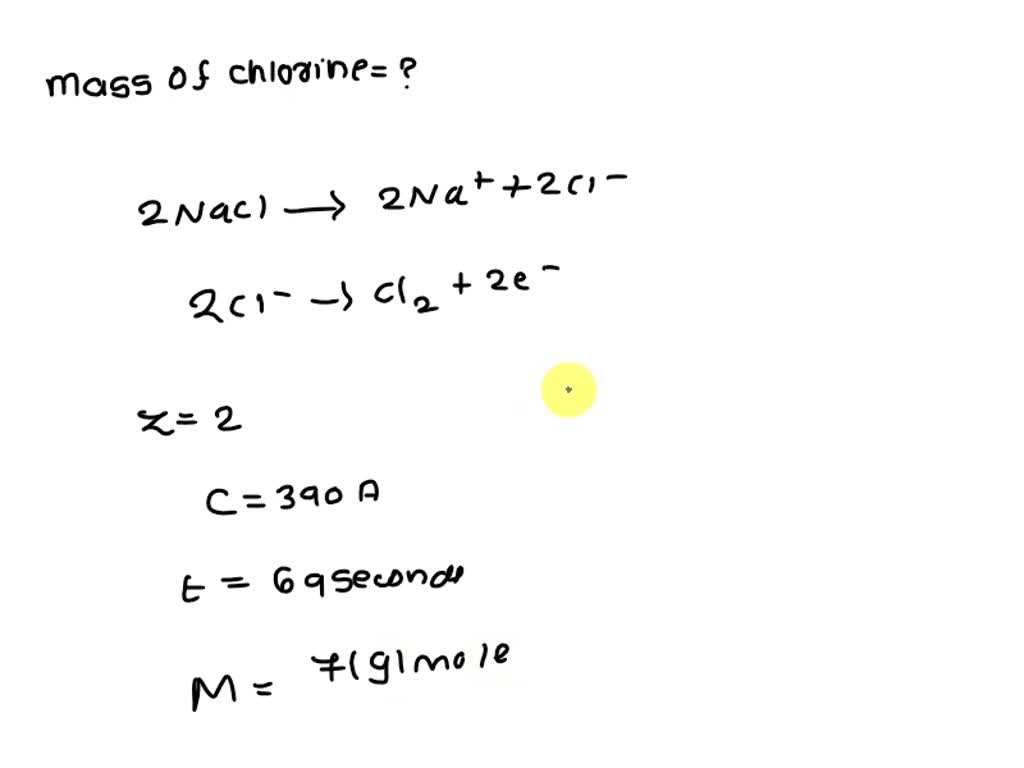 mass of chlorine = ?
2NaCl → 2Na⁺ + 2Cl⁻
2Cl⁻ → Cl₂ + 2e⁻
z = 2
C = 390 A
t = 69 seconds
M = 71 g/mole